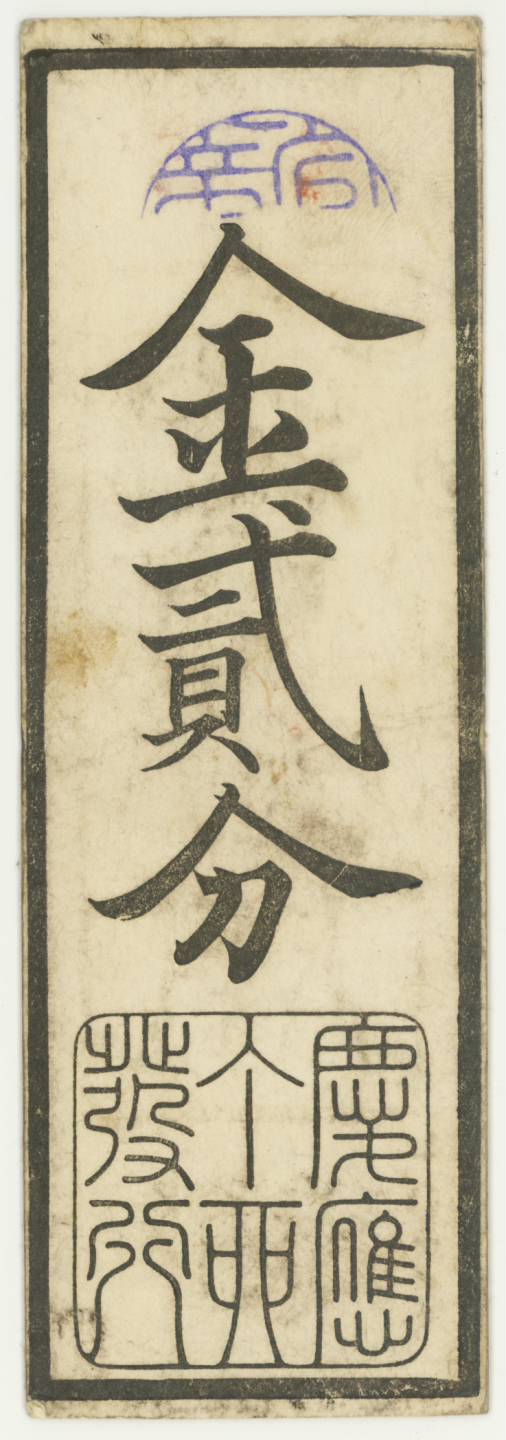 金貳分
慶應
丁卯
發行